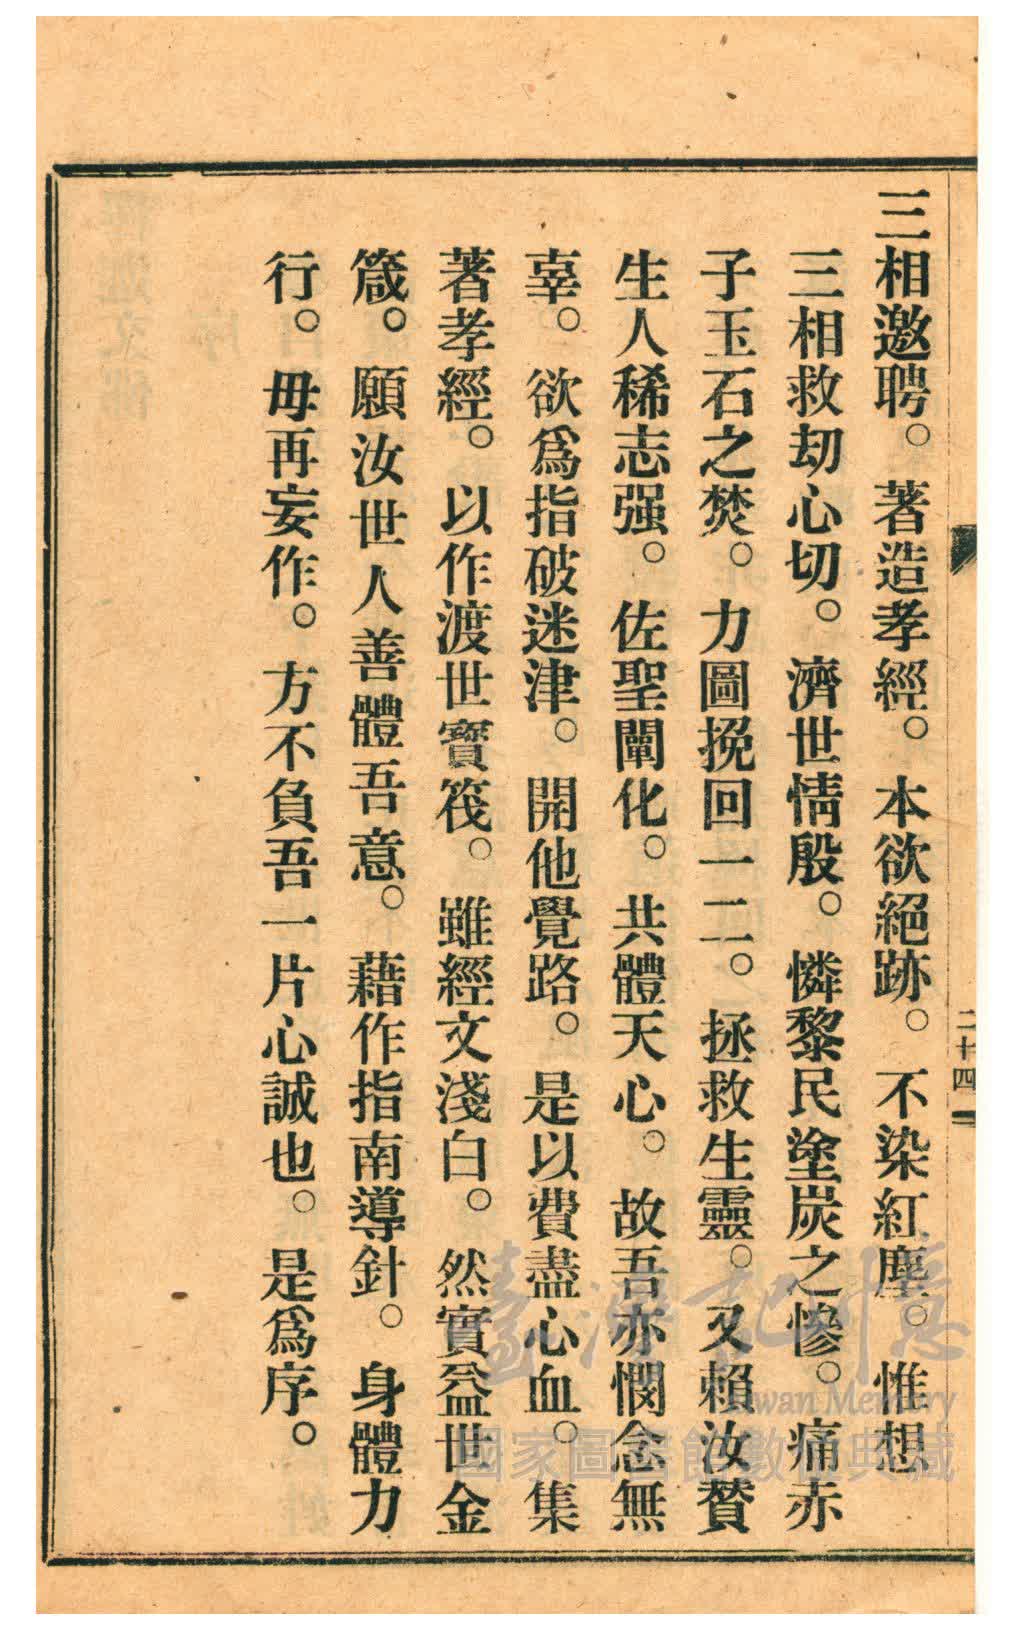 三相邀聘。著造孝經。本欲絕跡。不染紅塵。惟想
三相救劫心切。濟世情殷。憐黎民塗炭之慘。痛赤
子玉石之焚。力圖挽回一二。拯救生靈。又賴汝贊
生人稀志强。佐聖闡化。共體天心。故吾亦憫念無
辜。欲爲指破迷津。開他覺路。是以費盡心血。集
著孝經。以作渡世寶筏。雖經文淺白。然實益世金
箴。願汝世人善體吾意。藉作指南導針。身體力
行。毋再妄作。方不負吾一片心誠也。是爲序。
二十四
臺灣記憶
Taiwan Memory
國家圖書館數位典藏